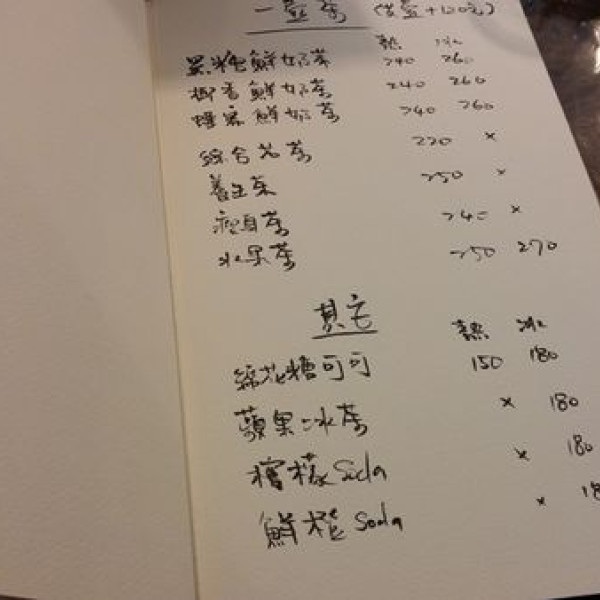 一壺茶 (共壺+120元)
熱 冰
黑糖鮮奶茶 240 260
椰香鮮奶茶 240 260
蜂蜜鮮奶茶 240 260
綜合花茶 220 ×
養生茶 250 ×
瘦身茶 240 ×
水果茶 250 270
其它
熱 冰
綿花糖可可 150 180
蘋果冰茶 × 180
檸檬Soda × 180
鮮橙Soda ×